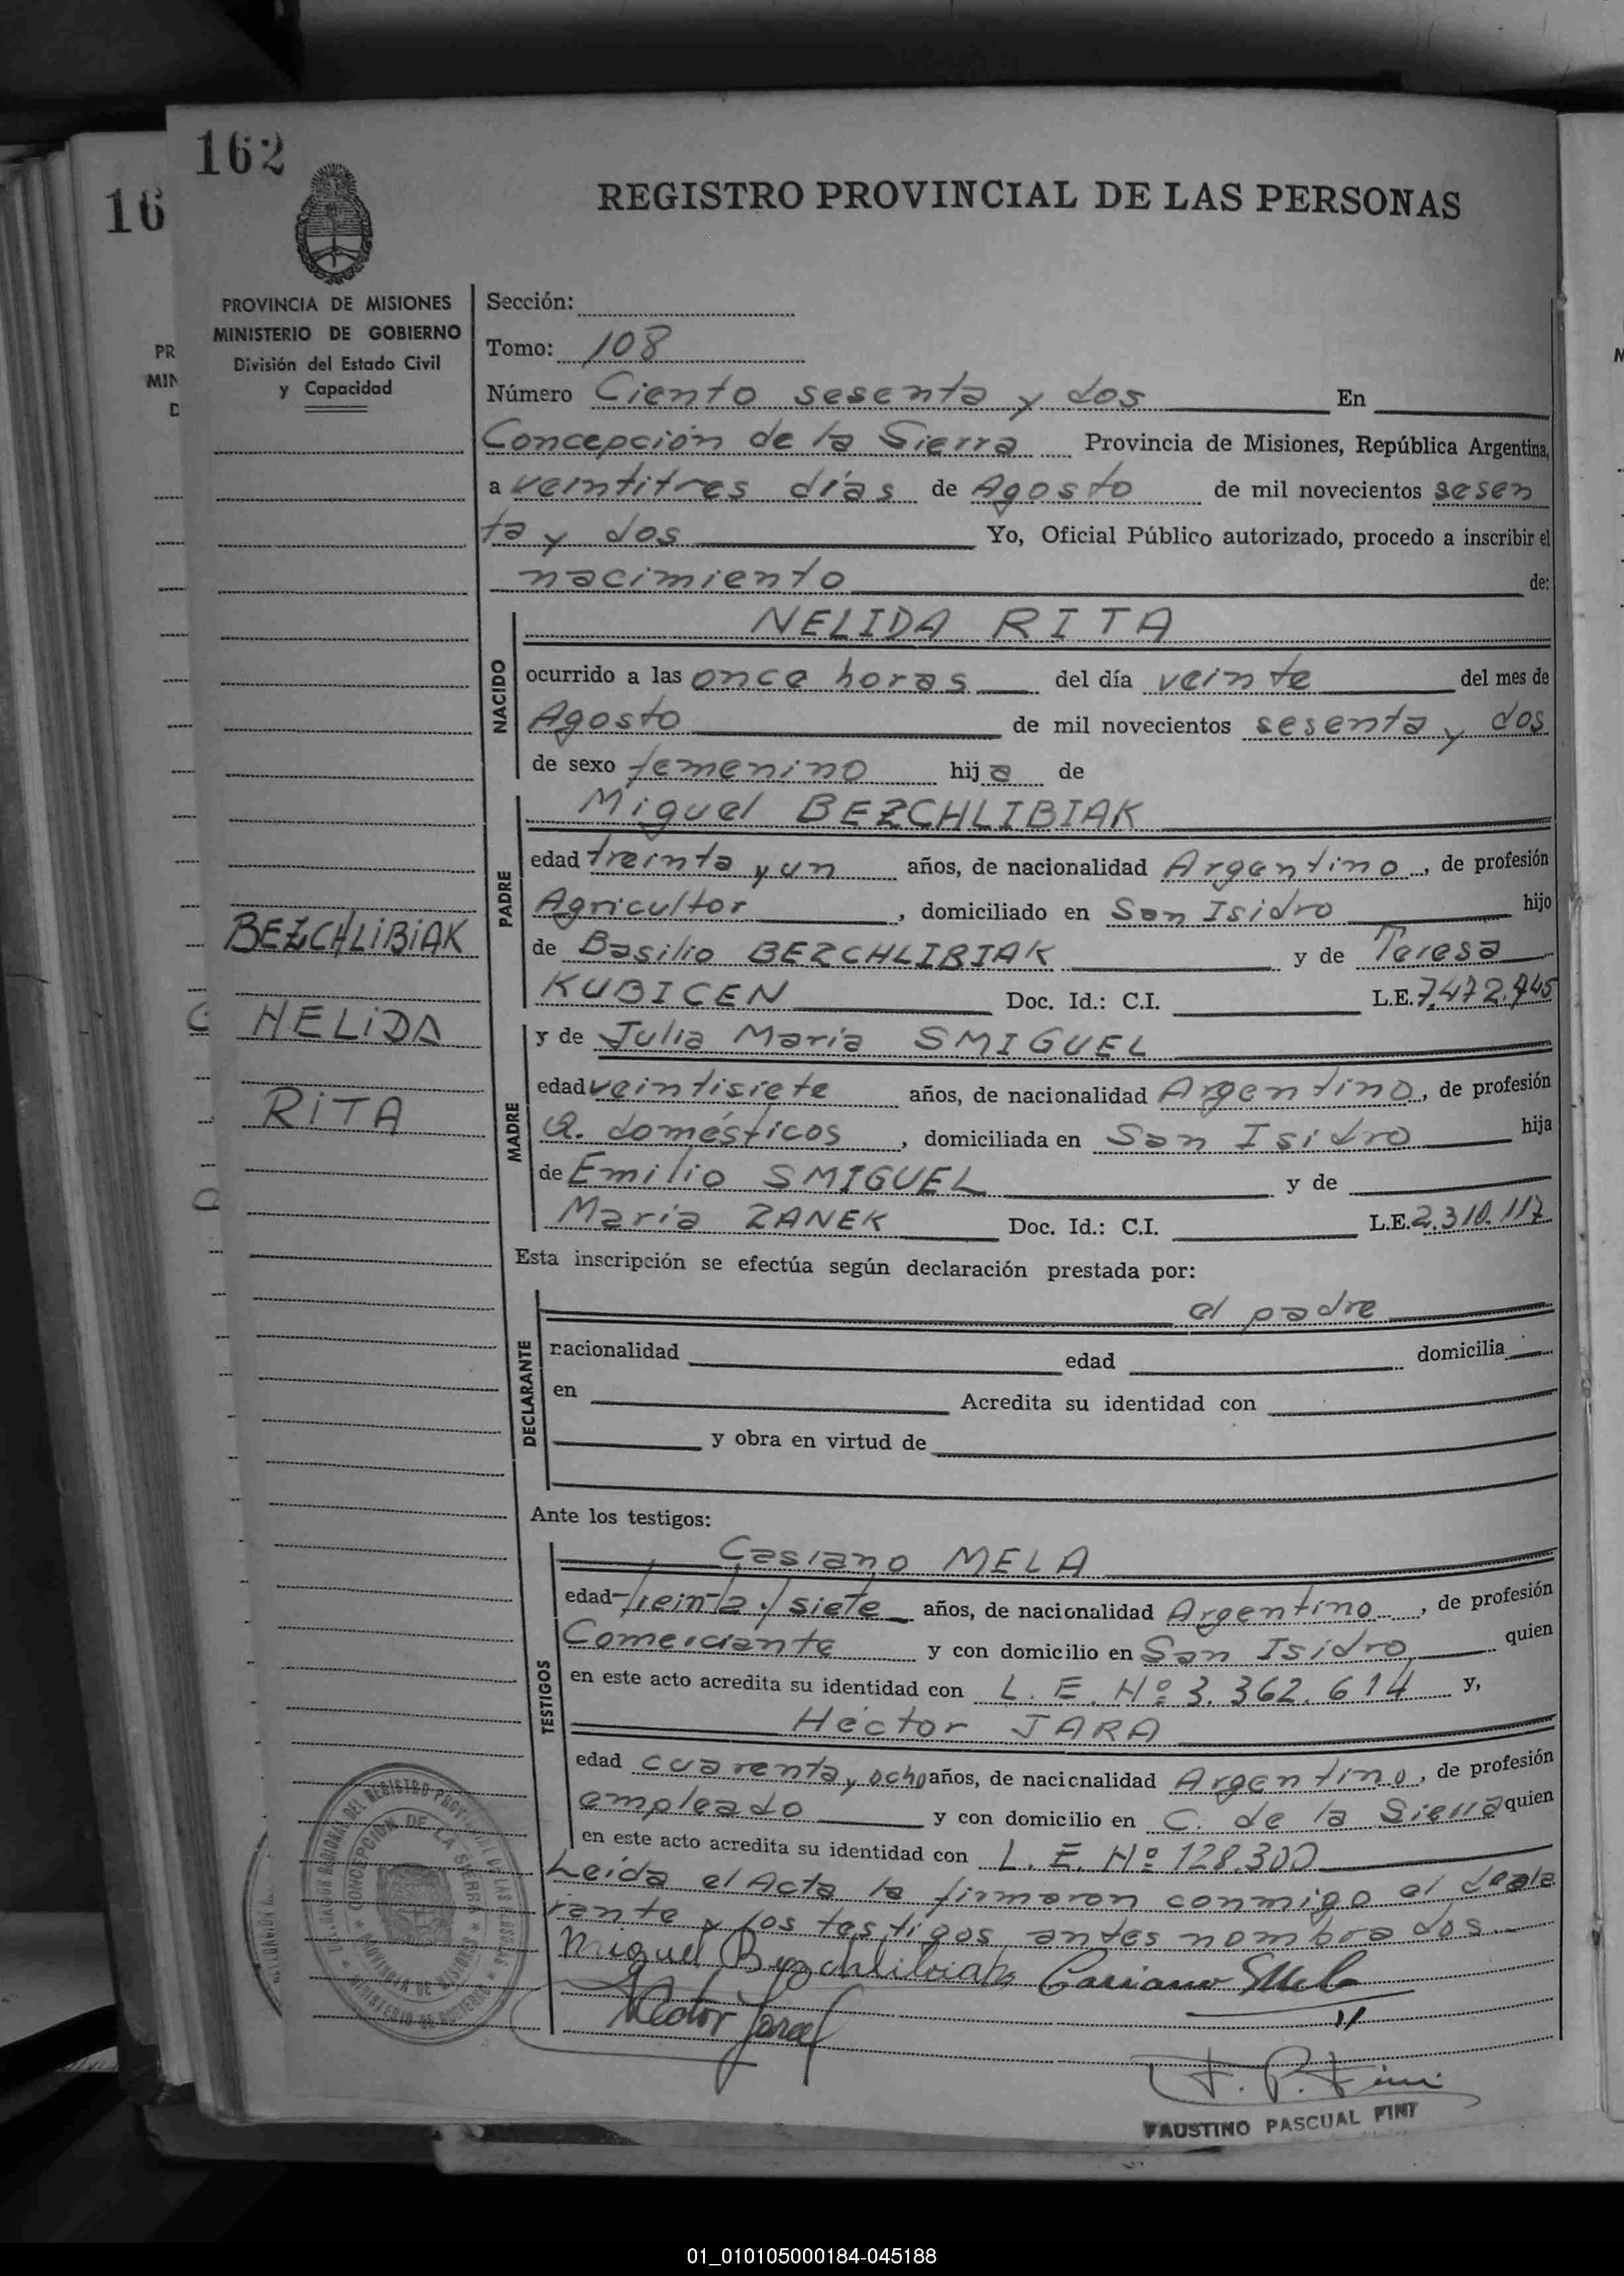 162
16
REGISTRO PROVINCIAL DE LAS PERSONAS
PROVINCIA DE MISIONES
MINISTERIO DE GOBIERNO
División del Estado Civil
y Capacidad
Sección:
Tomo: 108
Número Ciento sesenta y dos En
Concepción de la Sierra Provincia de Misiones, República Argentina,
a veintitres días de Agosto de mil novecientos sesen
ta y dos Yo, Oficial Público autorizado, procedo a inscribir el
nacimiento de:
NACIDO
NELIDA RITA
ocurrido a las once horas del día veinte del mes de
Agosto de mil novecientos sesenta y dos
de sexo femenino hija de
PADRE
Miguel BEZCHLIBIAK
edad treinta y un años, de nacionalidad Argentino, de profesión
Agricultor, domiciliado en San Isidro hijo
de Basilio BEZCHLIBIAK y de Teresa
KUBICEN Doc. Id.: C.I. L.E. 7.472.945
BEZCHLIBIAK
HELIDA
RITA
MADRE
y de Julia María SMIGUEL
edad veintisiete años, de nacionalidad Argentino, de profesión
Q. domésticos, domiciliada en San Isidro hija
de Emilio SMIGUEL y de
María ZANEK Doc. Id.: C.I. L.E. 2.310.117
Esta inscripción se efectúa según declaración prestada por:
DECLARANTE
el padre
nacionalidad edad domicilia
en Acredita su identidad con
y obra en virtud de
Ante los testigos:
TESTIGOS
Casiano MELA
edad treinta y siete años, de nacionalidad Argentino, de profesión
Comerciante y con domicilio en San Isidro, quien
en este acto acredita su identidad con L. E. Nº 3.362.614 y,
Héctor JARA
edad cuarenta y ocho años, de nacionalidad Argentino, de profesión
empleado y con domicilio en C. de la Sierra quien
en este acto acredita su identidad con L. E. Nº 128.300
Leida el Acta la firmaron conmigo el decla
rante y los testigos antes nombrados.
Miguel Bezchlibiak Casiano Mela
Héctor Jara
F. P. Fini
FAUSTINO PASCUAL FINI
CONCEPCION DE LA SIERRA
PROVINCIA DE MISIONES
MINISTERIO DE GOBIERNO
01_010105000184-045188